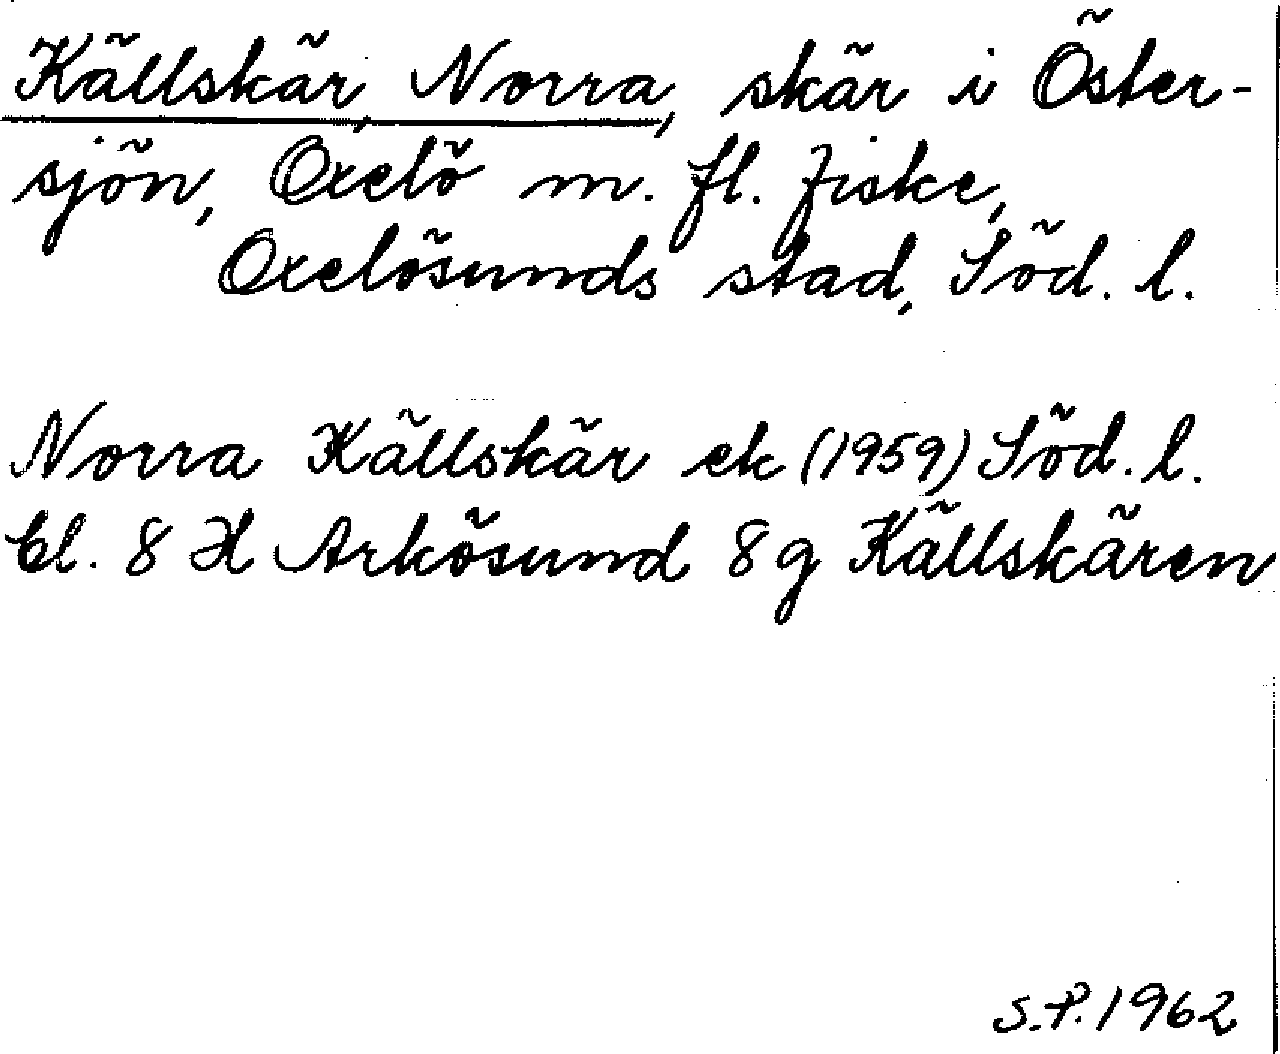 Källskär, Norra, skär i Öster-
sjön, Oxelö m. fl. fiske,
Oxelösunds stad, Söd. l.
Norra Källskär ek (1959) Söd. l.
bl. 8 H Arkösund 8 g Källskären
S.P. 1962